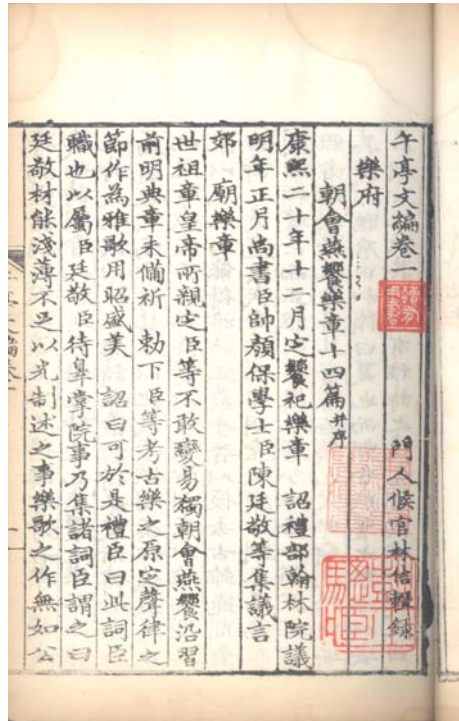 午亭文編卷一
門人候官林佶輯錄
樂府
朝會燕饗樂章十四篇并序
康熙二十年十二月定饗祀樂章 詔禮部翰林院議
明年正月尚書臣帥顏保學士臣陳廷敬等集議言
郊 廟樂章
世祖章皇帝所親定臣等不敢變易獨朝會燕饗沿習
前明典章未備祈 勅下臣等考古樂之原定聲律之
節作為雅歌用昭盛美 詔曰可於是禮臣曰此詞臣
職也以屬臣廷敬臣待辠掌院事乃集諸詞臣謂之曰
廷敬材能淺薄不足以光制述之事樂歌之作無如公